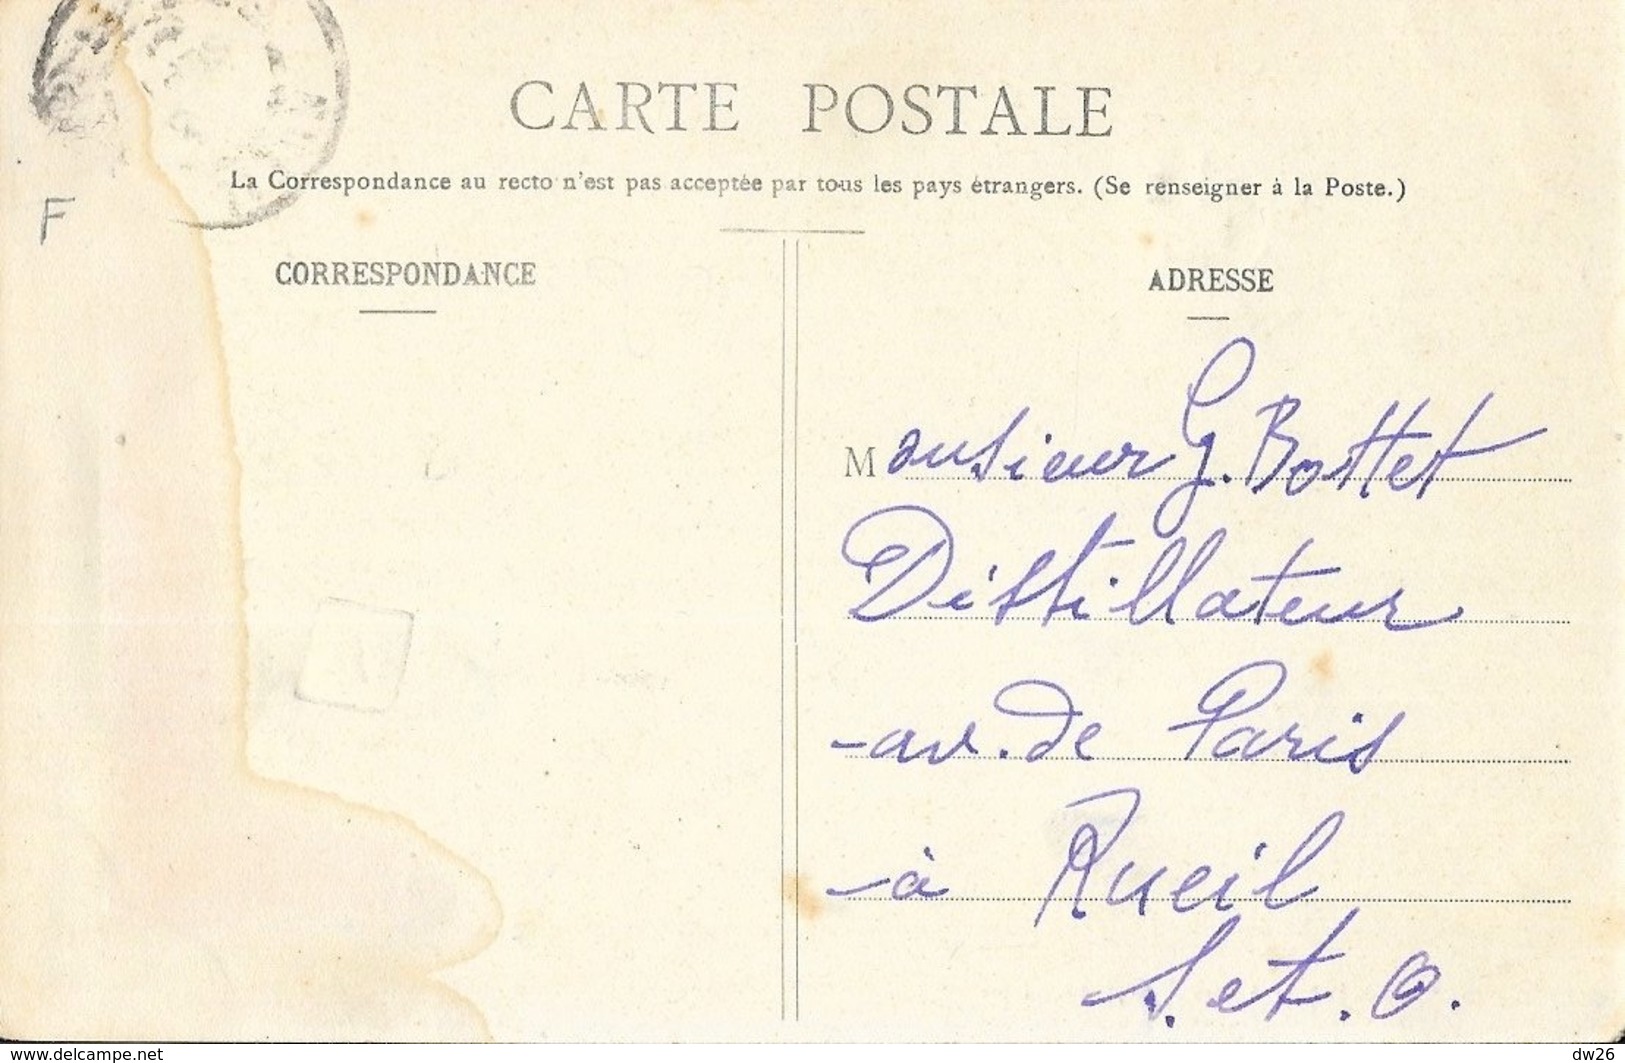 CARTE POSTALE
La Correspondance au recto n'est pas acceptée par tous les pays étrangers. (Se renseigner à la Poste.)
F
CORRESPONDANCE
ADRESSE
Monsieur G. Bottet
Distillateur
-av. de Paris
-à Rueil
S. et. O.
www.delcampe.net
dw26